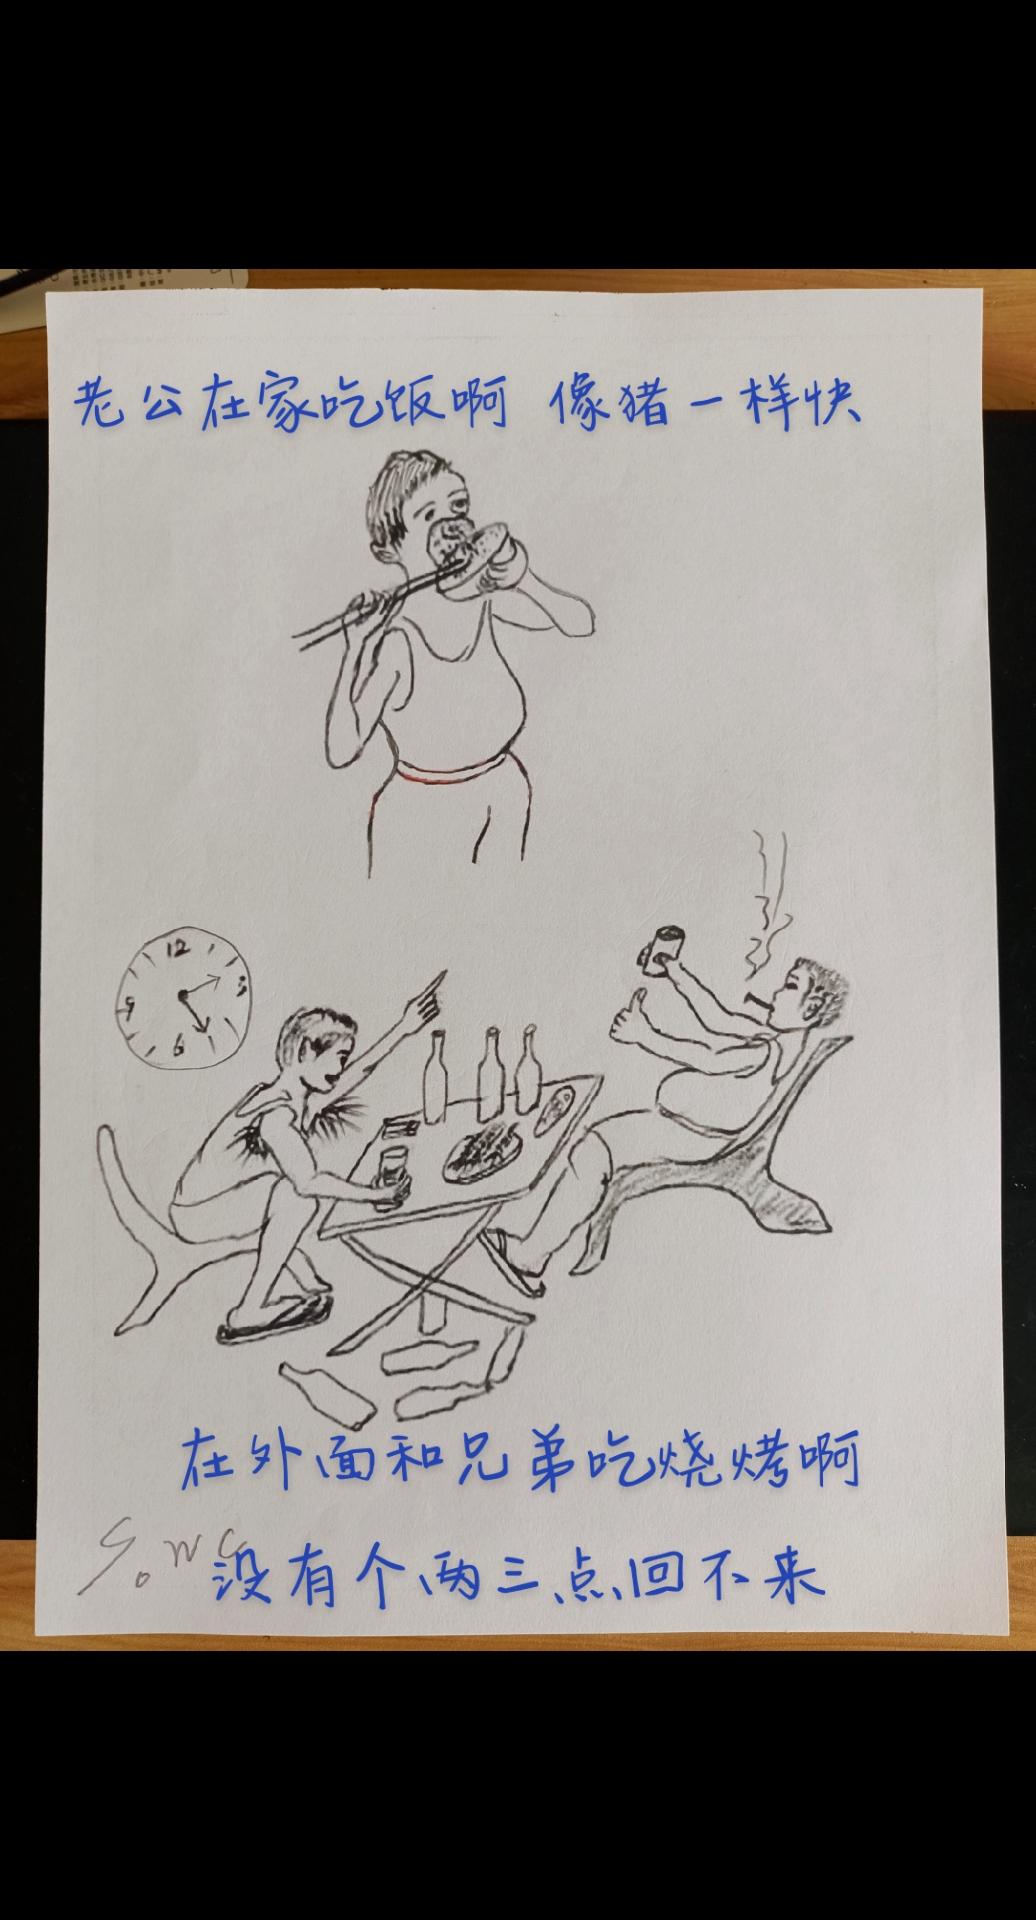 老公在家吃饭啊 像猪一样快
12
3
9
6
在外面和兄弟吃烧烤啊
没有个两三点回不来